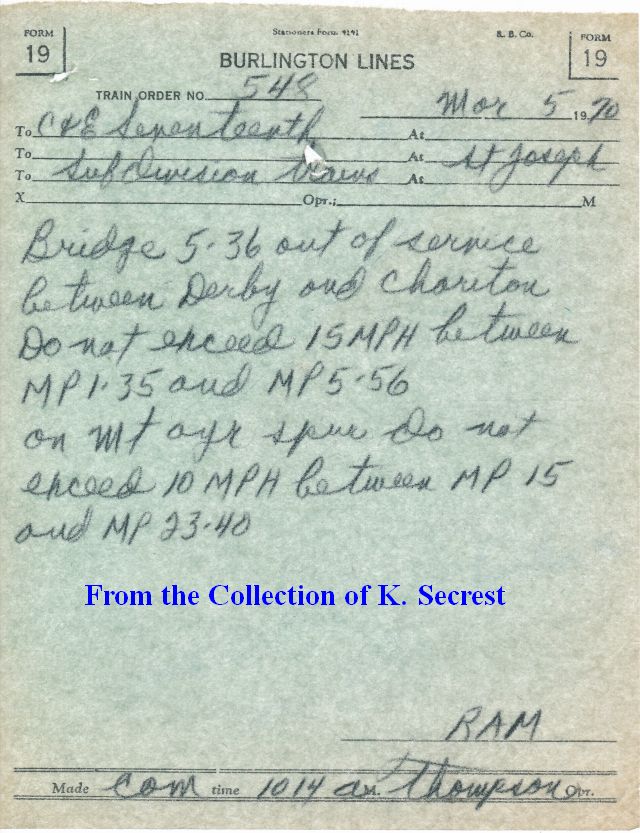 FORM 19
Stationers Form 4141
R. B. Co.
FORM 19
BURLINGTON LINES
TRAIN ORDER NO. 548
Mar 5 1970
To C&E Seventeenth At
To At St Joseph
To Subdivision trains At
X Opr.; M
Bridge 5.36 out of service
between Derby and Chariton
Do not exceed 15 MPH between
MP 1.35 and MP 5.56
on Mt ayr spur Do not
exceed 10 MPH between MP 15
and MP 23.40
From the Collection of K. Secrest
RAM
Made Com time 1014 a M. Thompson Opr.